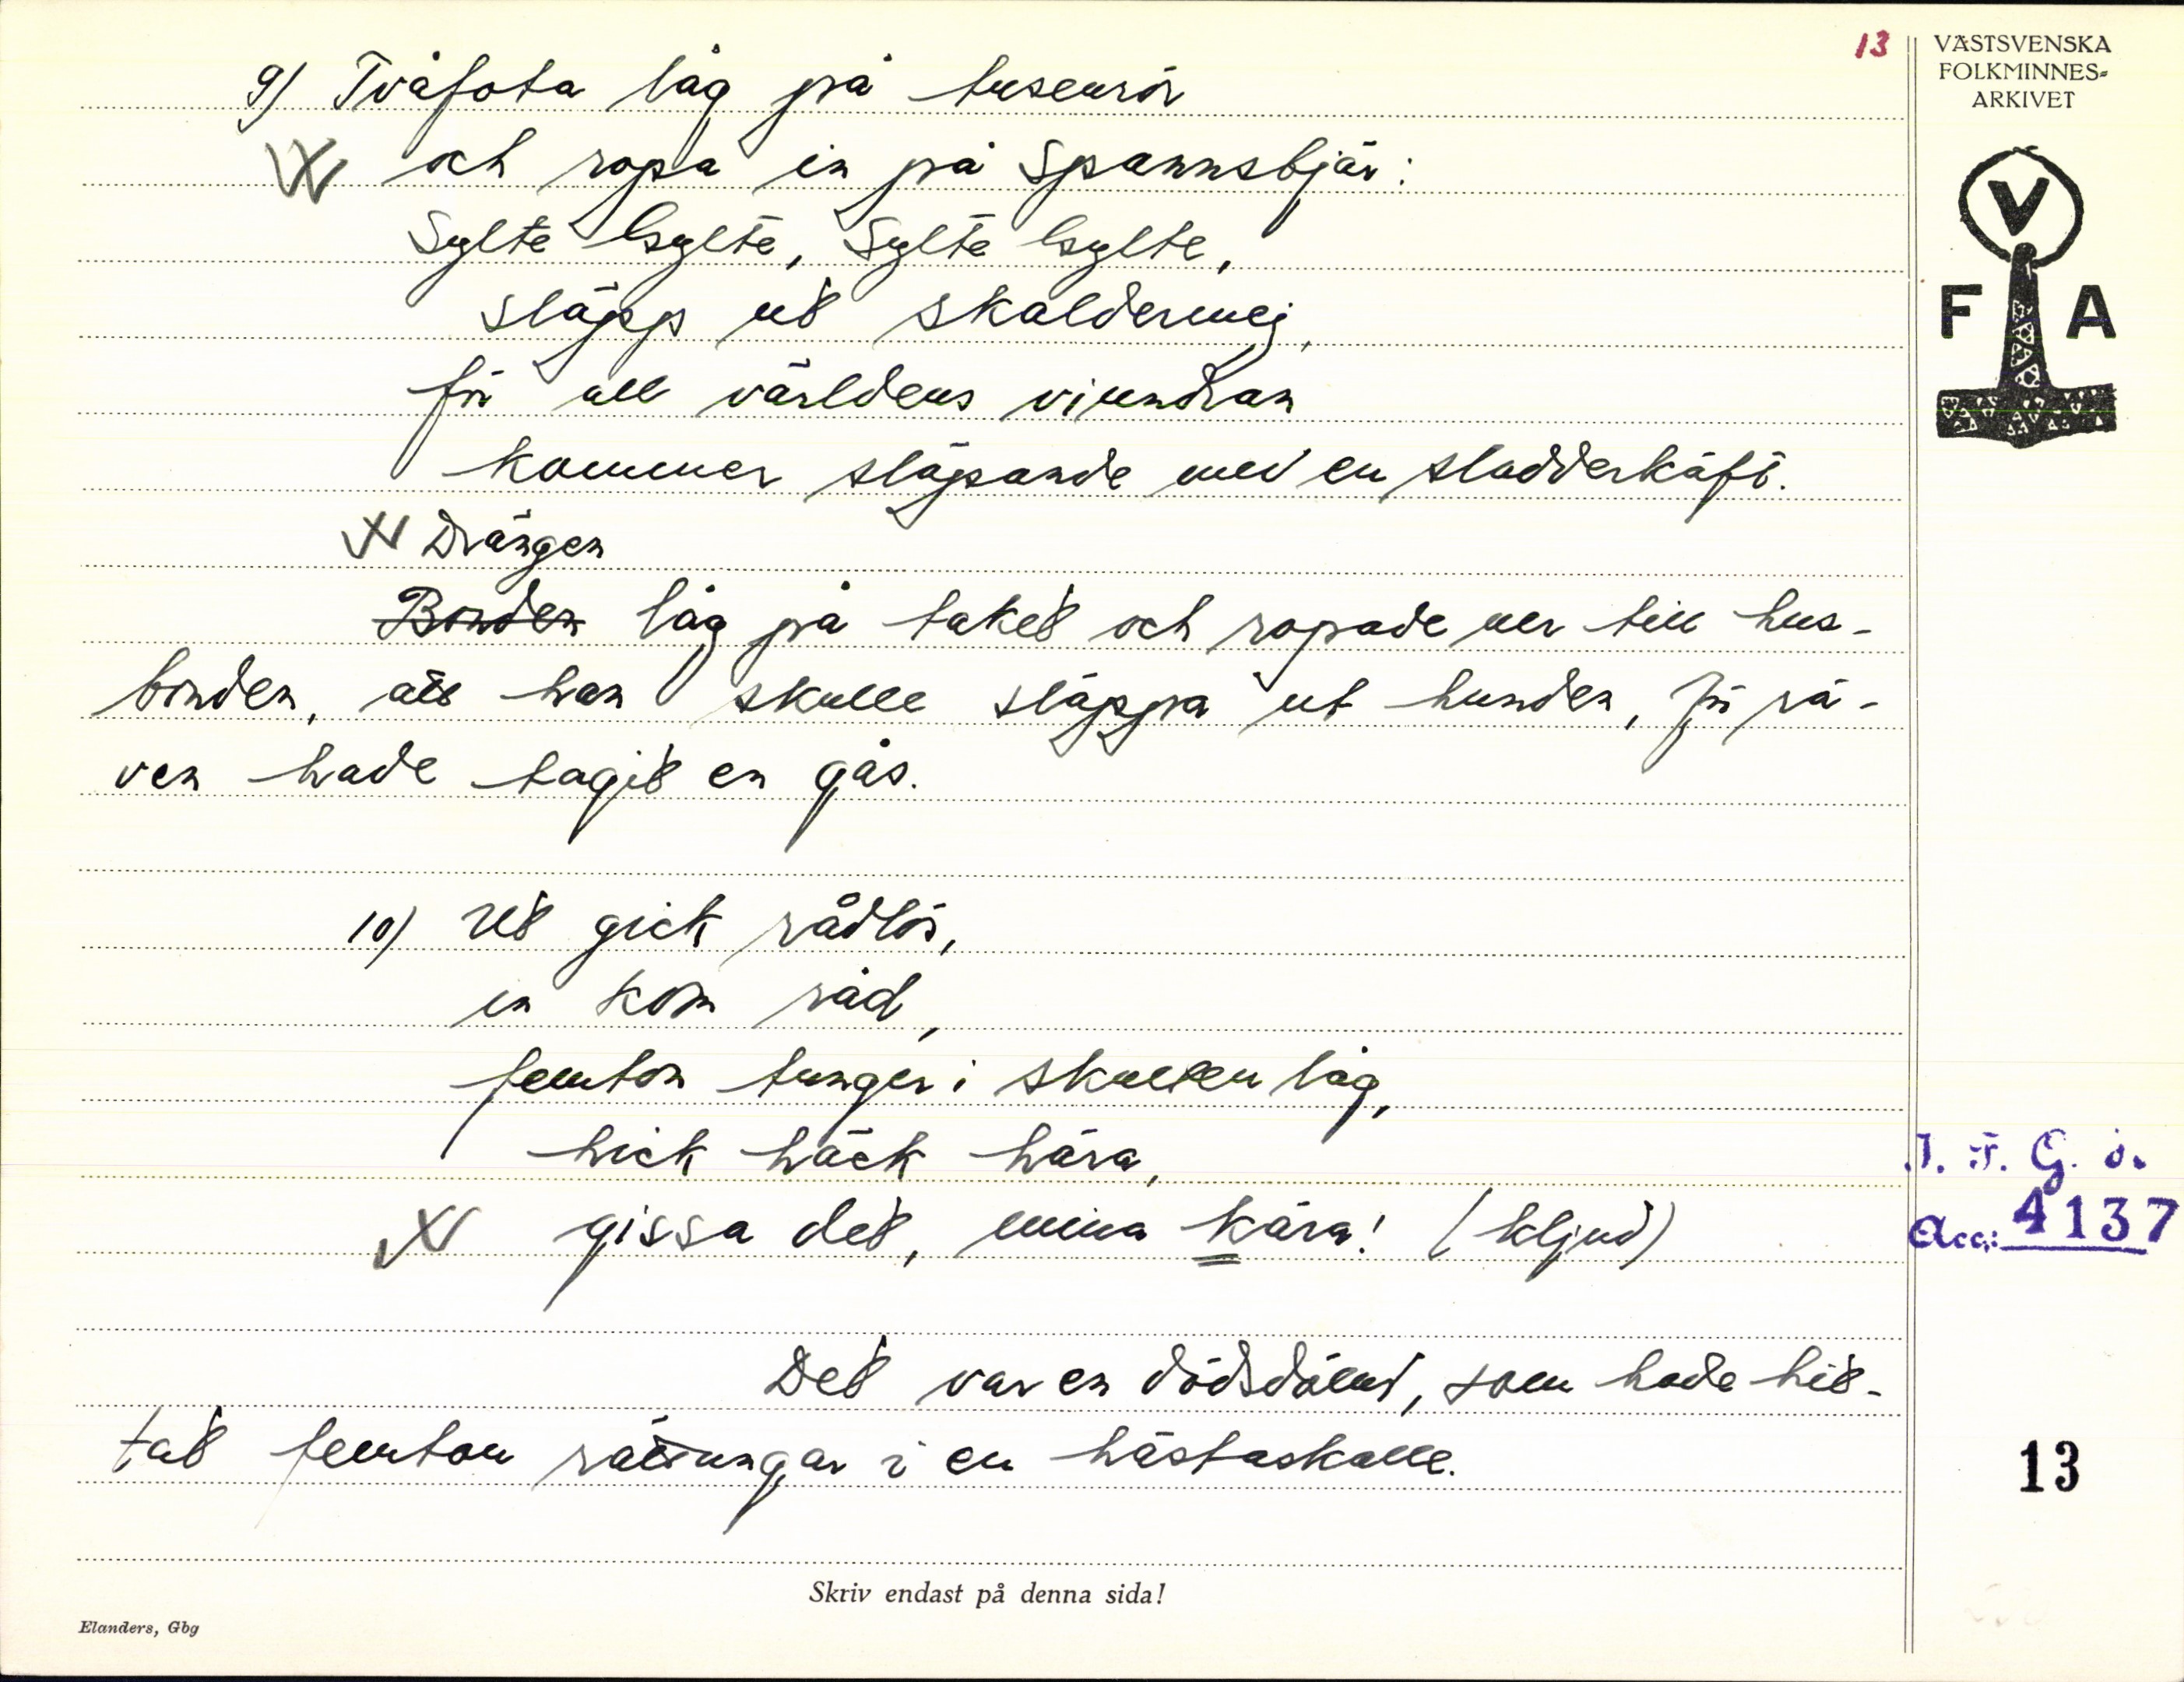 13
VÄSTSVENSKA
FOLKMINNES=
ARKIVET
V
F A
9) Tvåfota låg på tusenrör
och ropa in på Spannsbjär:
Sylte bylte, Sylte bylte,
släpp ut skaldermej,
för all världens vinndran
kommer släpande med en sladderkäft.
Drängen
Bonden låg på taket och ropade ner till hus-
bonden, att han skulle släppa ut hunden, för rä-
ven hade tagit en gås.
10) Ut gick rådlös,
in kom råd,
femton tunger i skallen låg,
hick häck hära,
gissa det, mina kära! (kljud)
Det var en dödsdömd, som hade hit-
tat femton råttungar i en hästaskalle.
I. F. G. s.
Acc: 4137
13
Skriv endast på denna sida!
Elanders, Gbg